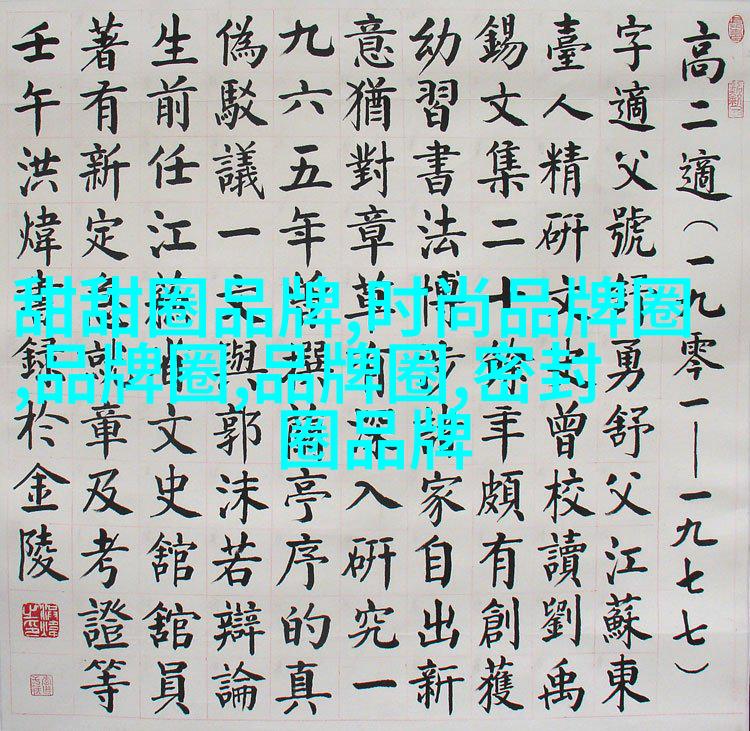 高二適（一九零一—一九七七）
字適父號勇舒父江蘇東
臺人精研文史曾校讀劉禹
錫文集二十餘年頗有創獲
幼習書法博涉諸家自出新
意猶對章草有深入研究一
九六五年撰蘭亭序的真
偽駁議一文與郭沫若辯論
生前任江蘇省文史舘舘員
著有新定急就章及考證等
壬午洪煒書録於金陵
甜甜圈品牌,时尚品牌圈
,品牌圈,品牌圈,密封
圈品牌